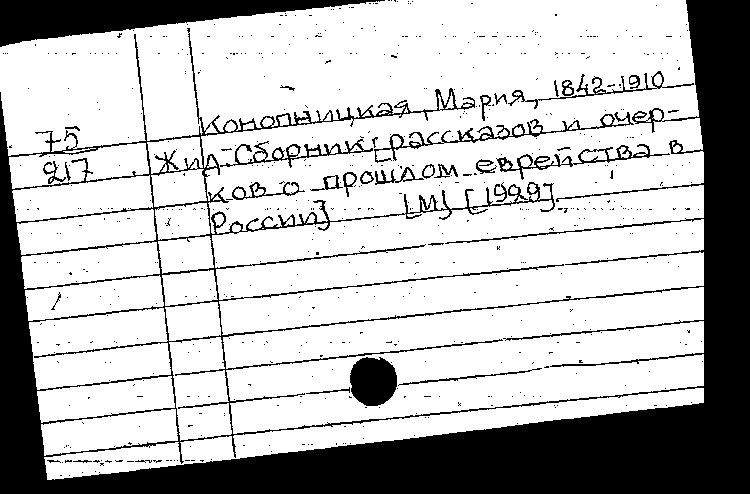 Конопницкая, Мария, 1842-1910
75
217
Жид. Сборник [рассказов и очер-
ков о прошлом еврейства в
России] [М] [1929].